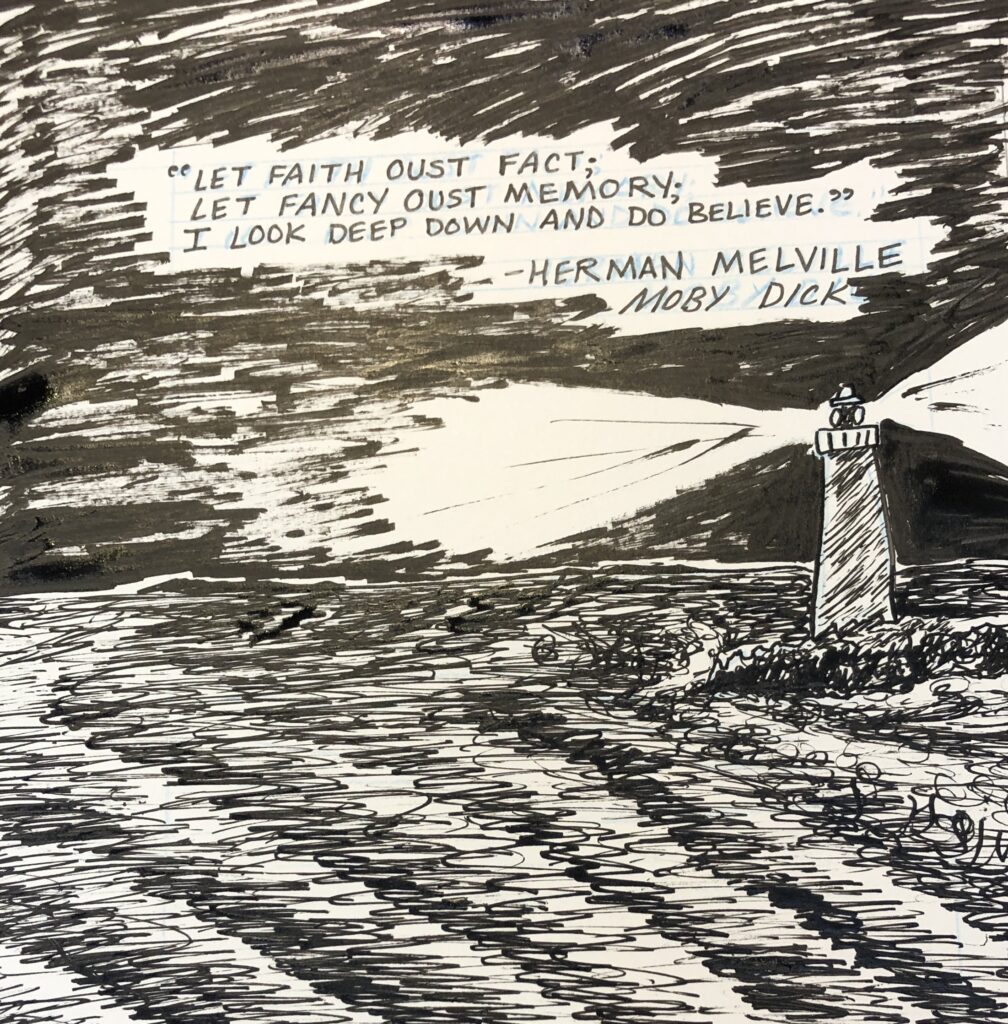 “LET FAITH OUST FACT;
LET FANCY OUST MEMORY;
I LOOK DEEP DOWN AND DO BELIEVE.”
-HERMAN MELVILLE
MOBY DICK